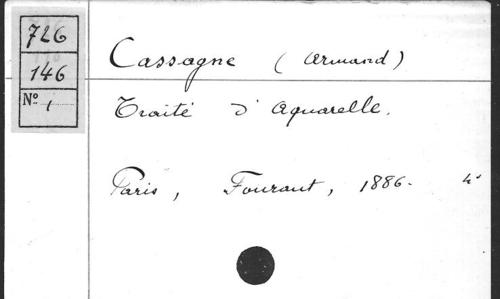 726
146
Nº 1
Cassagne (Armand)
Traité d'Aquarelle.
Paris, Fouraut, 1886. 4º